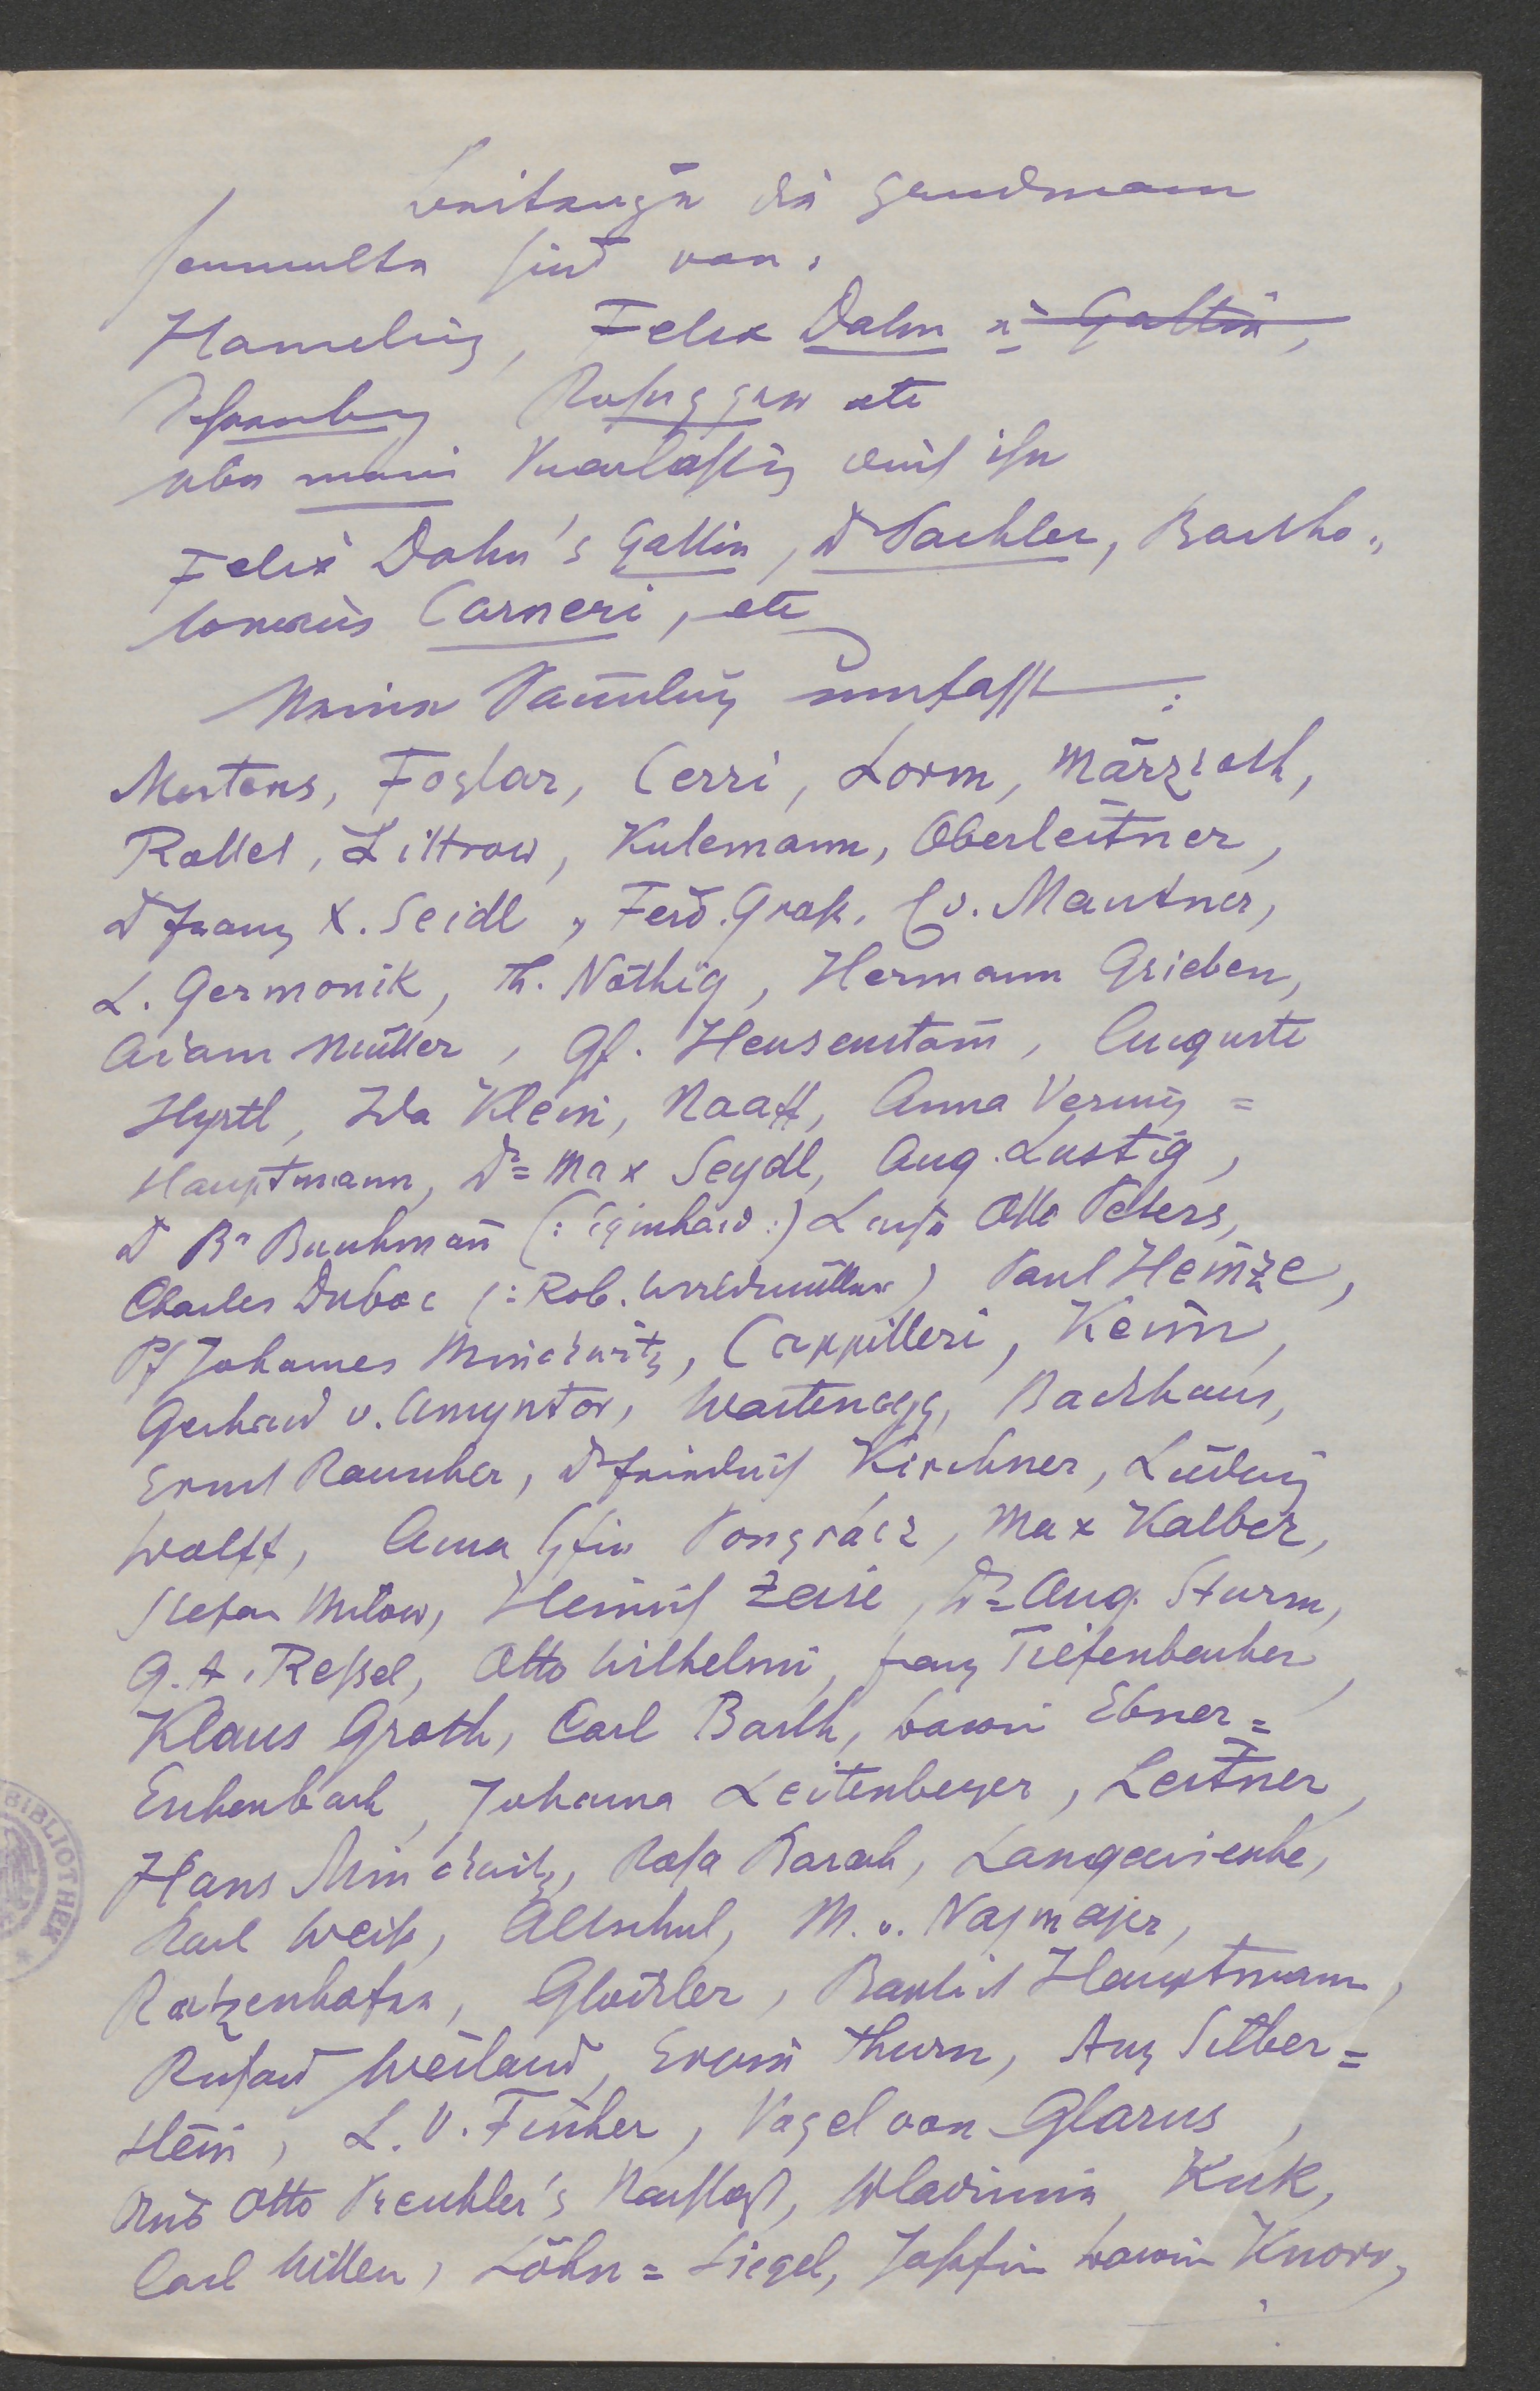 die Grundmann
sammelte sind von:
Hamerling, Felix Dahn u. Gattin,
Rosegger etc
über meine Veranlassung auch ihn
Felix Dahn's Gattin, Dr Pachler, Bartho„
lomäus Carneri, etc
Meine Samlung umfasst :
Mertens, Foglar, Cerri, Lorm, Märzroth,
Rollet, Littrow, Kulemann, Oberleitner,
Dr Franz X. Seidl, Ferd. Groß, E v. Mautner,
L. Germonik, Th. Nöthig, Hermann Grieben,
Adam Müller, Gf. Heusenstam̄, Auguste
Hyrtl, Ida Klein, Naaff, Anna Verniy =
Hauptmann, Dr= Max Seydl, Aug. Lustig,
Dr Br Buchman̄ (: Eginhard :) Luise Otto Peters,
Charles Duboc (: Rob. Waldmüller) Paul Heinze,
Pf Johannes Minckwitz, Cappilleri, Keim,
Gerhard v. Amyntor, Wartenegg, Backhaus,
Ernst Rauscher, Dr Friedrich Kirchner, Ludwig
Wolff, Anna Gfin Pongrácz, Max Kalbek,
Stefan Milow, Heinrich Zeise, Dr= Aug. Sturm,
G. A. Reßel, Otto Wilhelmi, Franz Tiefenbacher,
Klaus Groth, Carl Barth, Baronin Ebner =
Eschenbach, Johanna Leitenberger, Leitner,
Hans Minckwitz, Rosa Barach, Langewiesche,
Karl Weiß, Altschul, M. v. Najmajer,
Ratzenhofer, Glöckler, Hauptmann,
Richard Weiland, Erwin Thurn, Aug Silber =
stein, L. v. Fischer, Vogel von Glarus,
und Otto Prechtler's Nachlaß, Wladimir Kuk,
Carl Löhn = Siegel, Josefine Baronin Knorr,